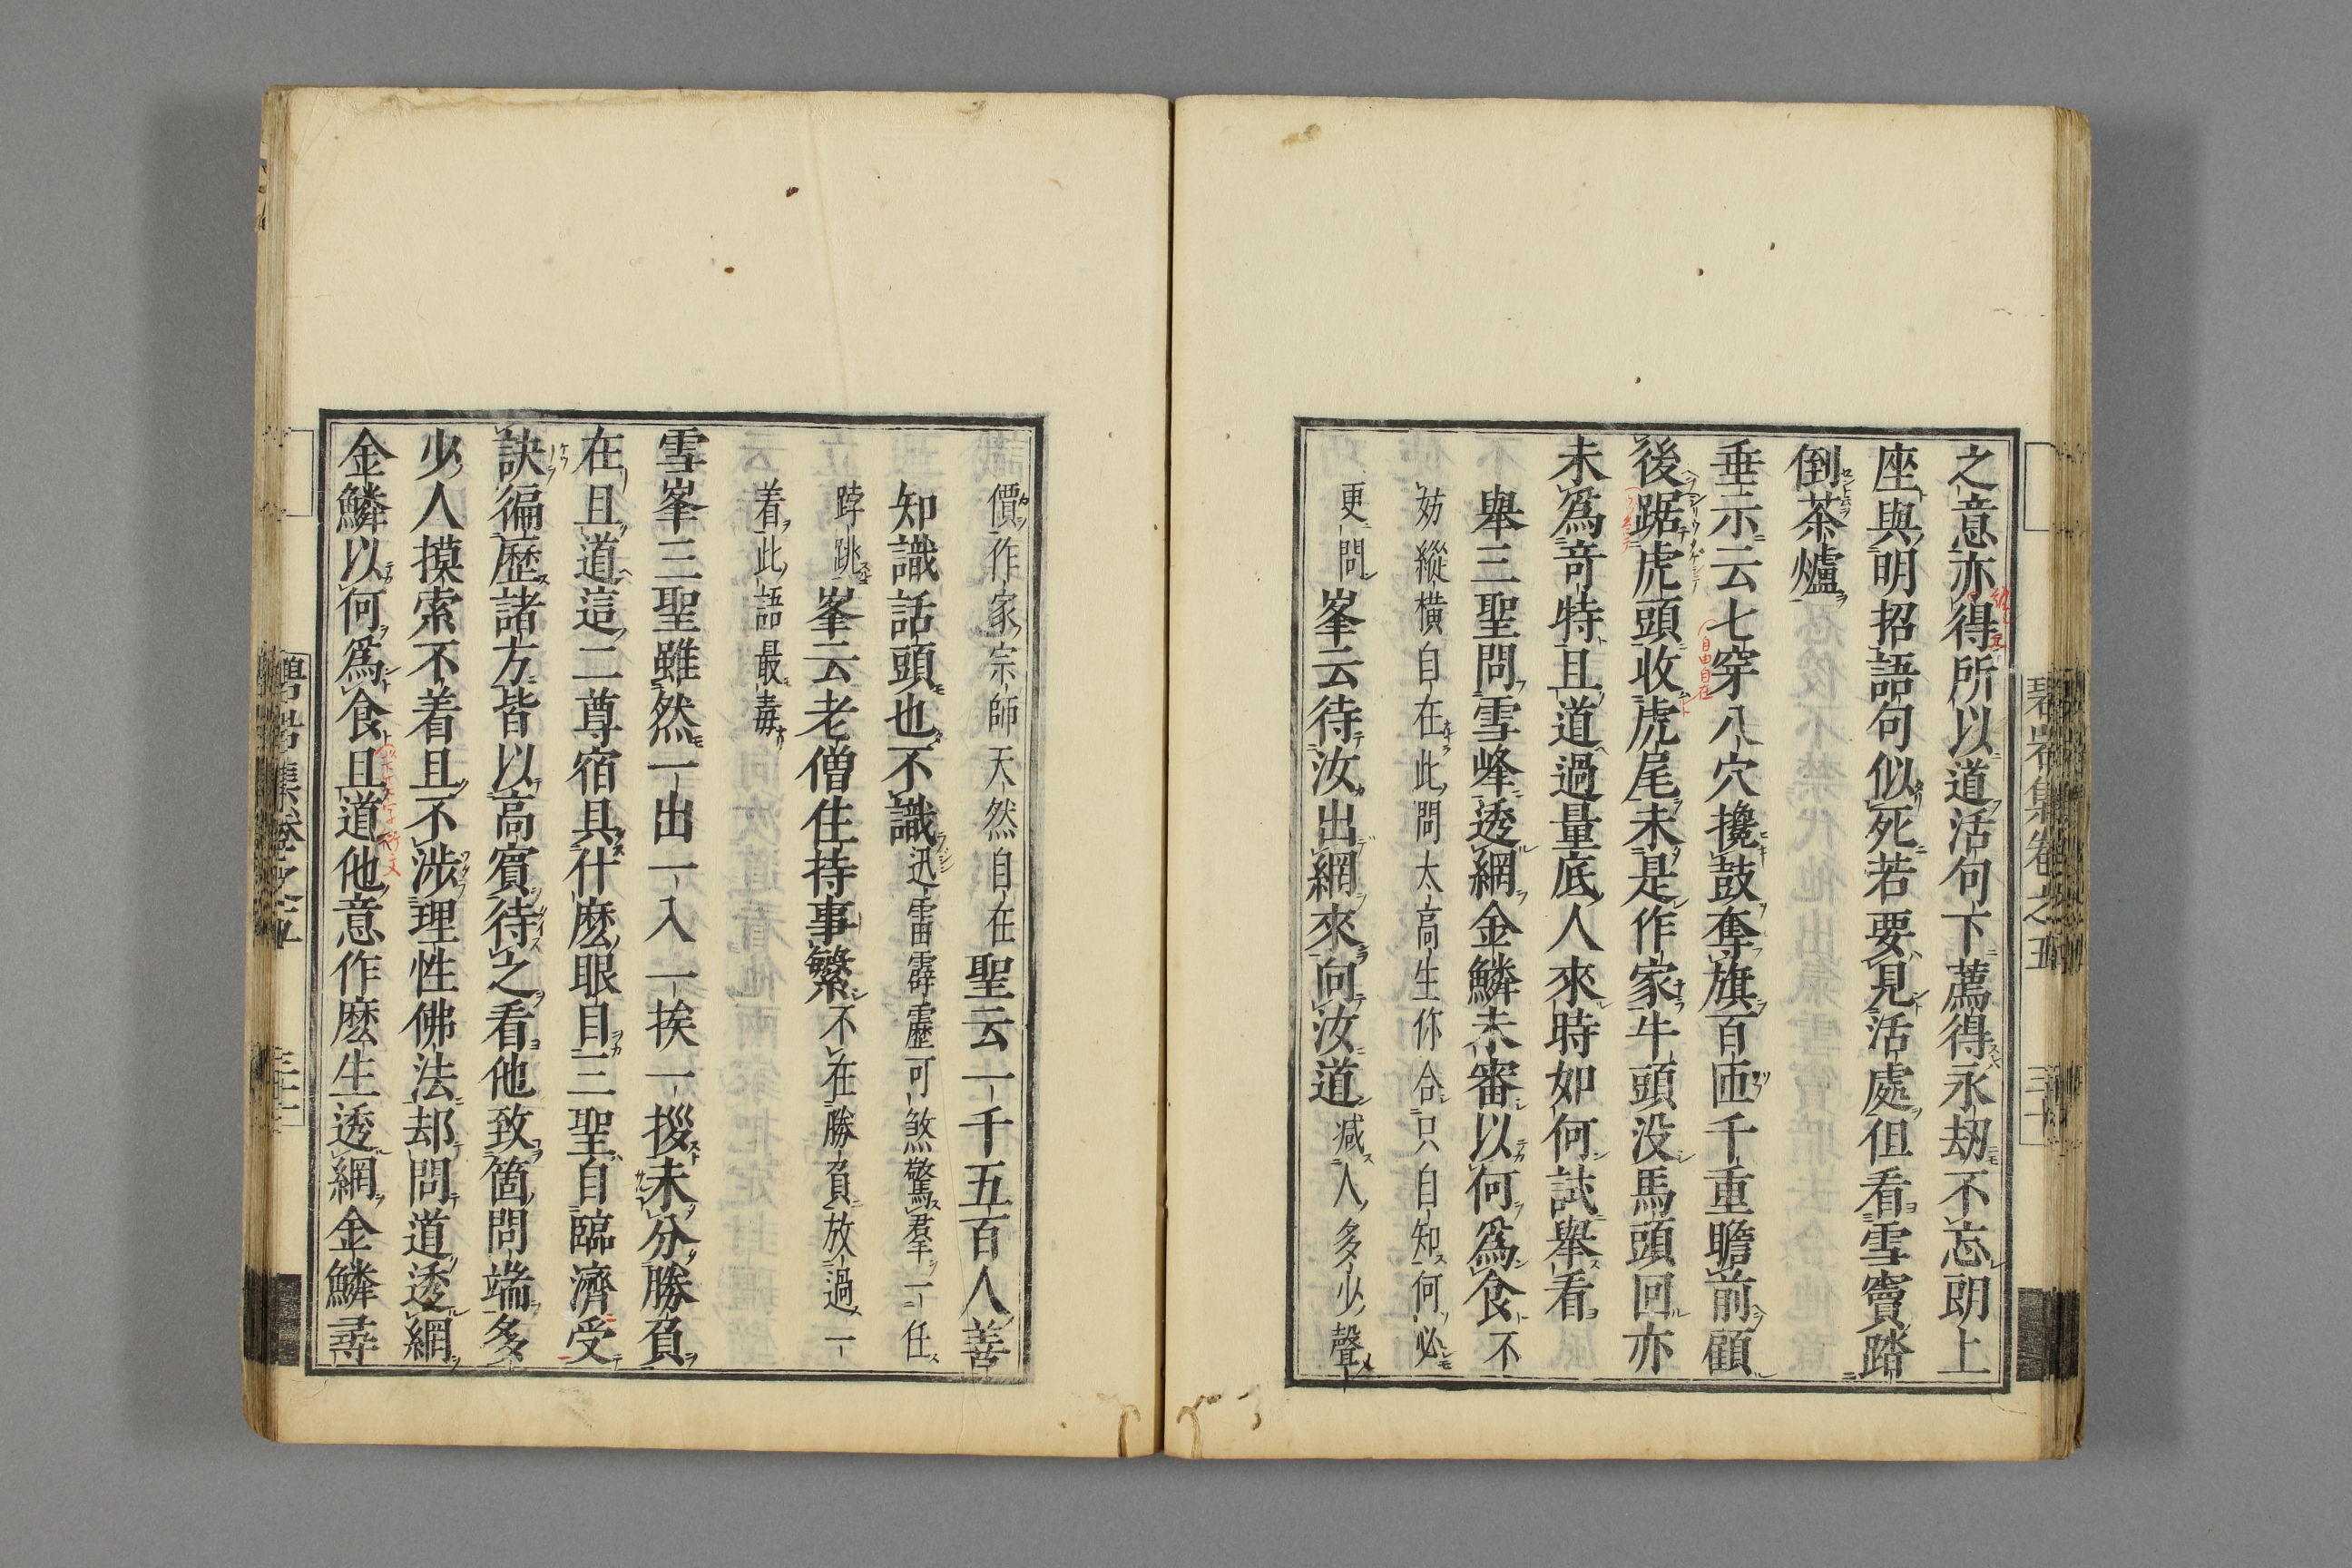 之意亦得所以道活句下薦得永劫不忘朗上
座與明招語句似死若要見活處但看雪竇踏
倒茶爐
垂示云七穿八穴攙鼓奪旗百匝千重瞻前顧
後踞虎頭收虎尾未是作家牛頭没馬頭回亦
未爲奇特且道過量底人來時如何試舉看
舉三聖問雪峰透網金鱗未審以何爲食不
妨縱橫自在此問太高生你合只自知何必
更問峯云待汝出網來向汝道減人多少聲
價作家宗師天然自在聖云一千五百人善
知識話頭也不識迅雷霹靂可煞驚羣一任
𨁝跳峯云老僧住持事繁不在勝負放過一
着此語最毒
雪峯三聖雖然一出一入一挨一拶未分勝負
在且道這二尊宿具什麽眼目三聖自臨濟受
訣徧歷諸方皆以高賓待之看他致箇問端多
少人摸索不着且不涉理性佛法却問道透網
金鱗以何爲食且道他意作麽生透網金鱗尋
碧岩集卷之五
碧岩集卷之五
自由自在